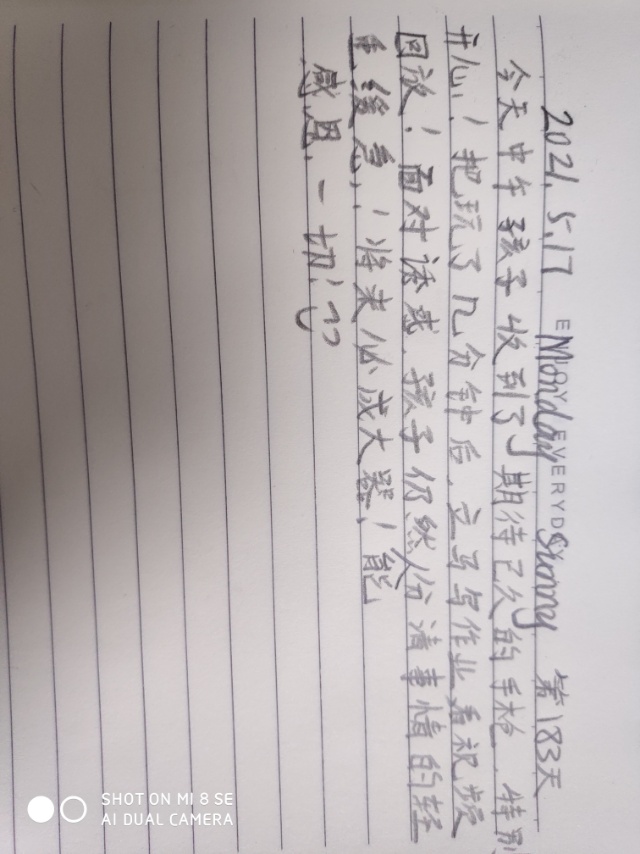 ENJOY EVERYDAY
2021.5.17 Monday Sunny 第183天
今天中午孩子收到了期待已久的手枪,特别
开心!把玩了几分钟后,立马写作业看视频
回放!面对诱惑,孩子仍然能分清事情的轻
重缓急,!将来必成大器!
感恩一切!
SHOT ON MI 8 SE
AI DUAL CAMERA